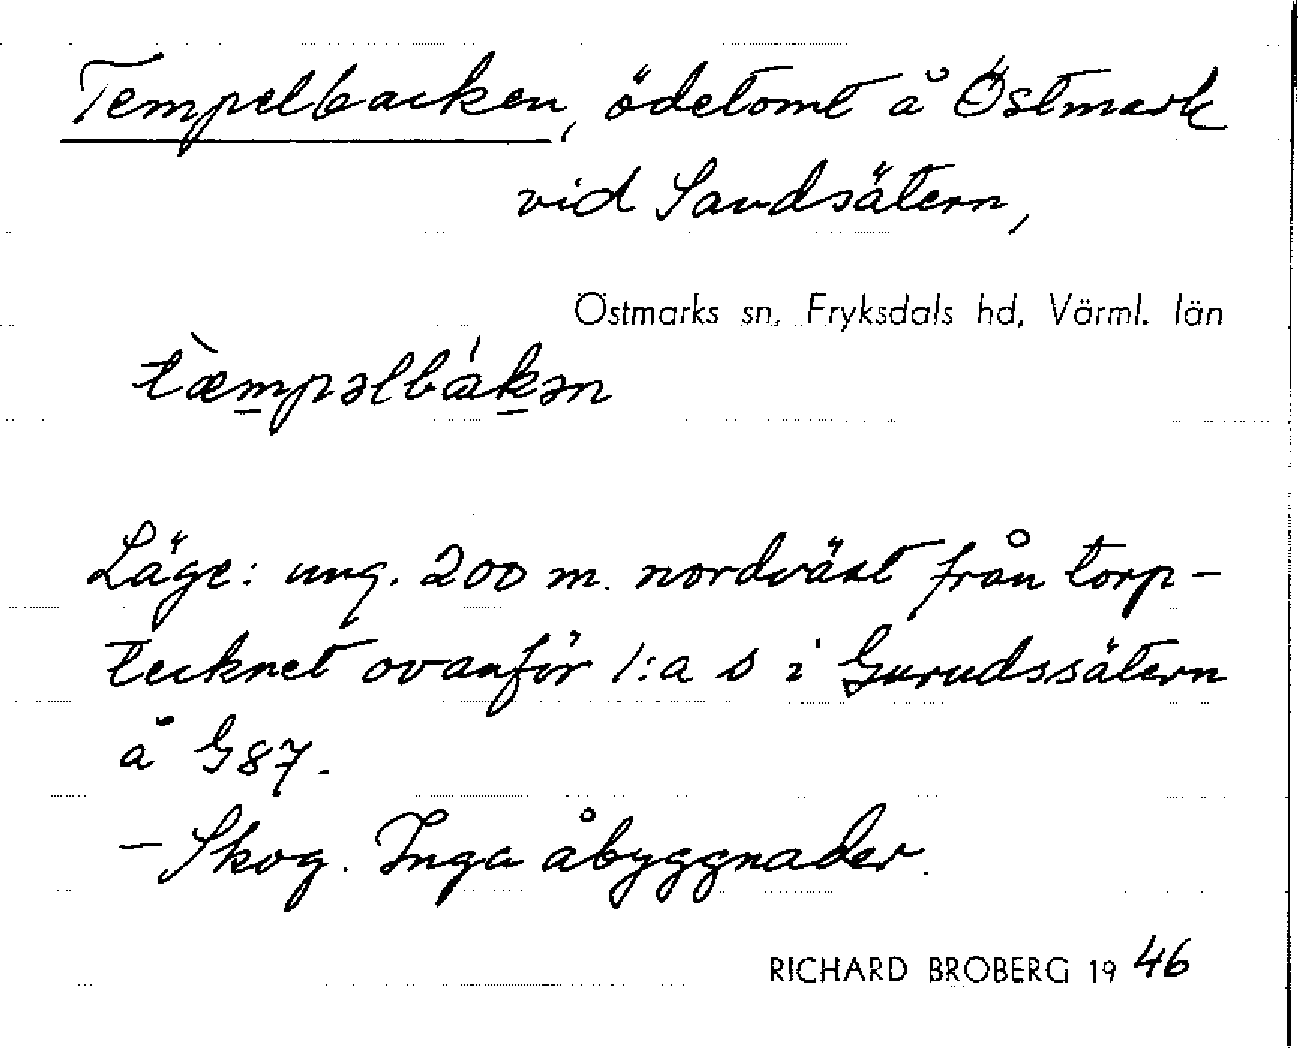 Tempelbacken, ödetomt å Östmark
vid Sandsätern,
Östmarks sn, Fryksdals hd, Värml. län
tæ̀mpəlbákən
Läge: ung. 200 m. nordväst från torp-
tecknet ovanför 1:a s i Gurudssätern
å G87.
– Skog. Inga åbyggnader.
RICHARD BROBERG 1946